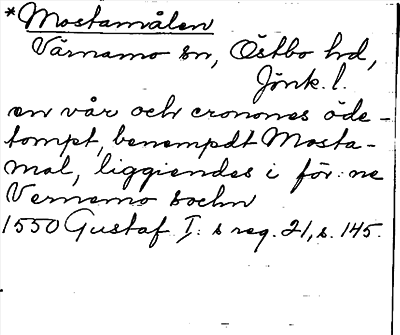 *Mostamålen
Värnamo sn, Östbo hd,
Jönk. l.
en vår och cronones öde-
tompt, benempdt Mosta-
mal, liggiendes i för:ne
Vernamo sochn
1550 Gustaf I:s reg. 21, s. 145.